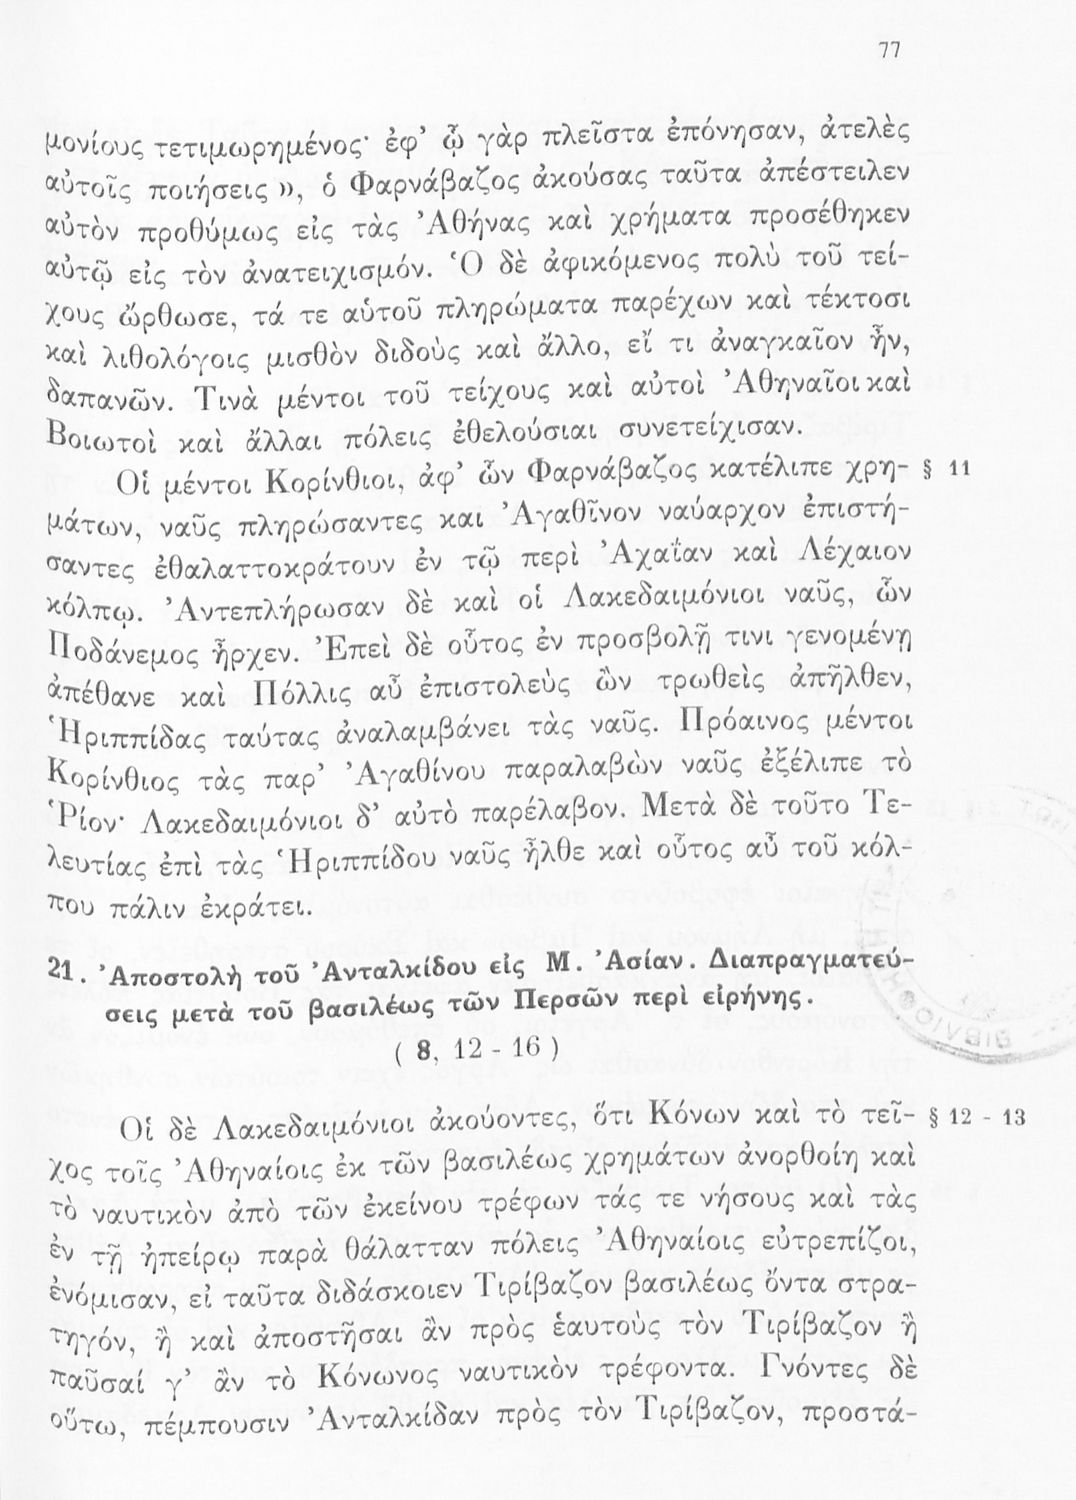 77
μονίους τετιμωρημένος· ἐφ’ ᾧ γὰρ πλεῖστα ἐπόνησαν, ἀτελὲς
αὐτοῖς ποιήσεις », ὁ Φαρνάβαζος ἀκούσας ταῦτα ἀπέστειλεν
αὐτὸν προθύμως εἰς τὰς Ἀθήνας καὶ χρήματα προσέθηκεν
αὐτῷ εἰς τὸν ἀνατειχισμόν. Ὁ δὲ ἀφικόμενος πολὺ τοῦ τεί-
χους ὤρθωσε, τά τε αὑτοῦ πληρώματα παρέχων καὶ τέκτοσι
καὶ λιθολόγοις μισθὸν διδοὺς καὶ ἄλλο, εἴ τι ἀναγκαῖον ἦν,
δαπανῶν. Τινὰ μέντοι τοῦ τείχους καὶ αὐτοὶ Ἀθηναῖοι καὶ
Βοιωτοὶ καὶ ἄλλαι πόλεις ἐθελούσιαι συνετείχισαν.
Οἱ μέντοι Κορίνθιοι, ἀφ’ ὧν Φαρνάβαζος κατέλιπε χρη- § 11
μάτων, ναῦς πληρώσαντες και Ἀγαθῖνον ναύαρχον ἐπιστή-
σαντες ἐθαλαττοκράτουν ἐν τῷ περὶ Ἀχαΐαν καὶ Λέχαιον
κόλπῳ. Ἀντεπλήρωσαν δὲ καὶ οἱ Λακεδαιμόνιοι ναῦς, ὧν
Ποδάνεμος ἦρχεν. Ἐπεὶ δὲ οὗτος ἐν προσβολῇ τινι γενομένῃ
ἀπέθανε καὶ Πόλλις αὖ ἐπιστολεὺς ὢν τρωθεὶς ἀπῆλθεν,
Ἡριππίδας ταύτας ἀναλαμβάνει τὰς ναῦς. Πρόαινος μέντοι
Κορίνθιος τὰς παρ’ Ἀγαθίνου παραλαβὼν ναῦς ἐξέλιπε τὸ
Ῥίον· Λακεδαιμόνιοι δ’ αὐτὸ παρέλαβον. Μετὰ δὲ τοῦτο Τε-
λευτίας ἐπὶ τὰς Ἡριππίδου ναῦς ἦλθε καὶ οὗτος αὖ τοῦ κόλ-
που πάλιν ἐκράτει.
21. Ἀποστολὴ τοῦ Ἀνταλκίδου εἰς Μ. Ἀσίαν. Διαπραγματεύ-
σεις μετὰ τοῦ βασιλέως τῶν Περσῶν περὶ εἰρήνης.
( 8, 12 - 16 )
Οἱ δὲ Λακεδαιμόνιοι ἀκούοντες, ὅτι Κόνων καὶ τὸ τεῖ- § 12 - 13
χος τοῖς Ἀθηναίοις ἐκ τῶν βασιλέως χρημάτων ἀνορθοίη καὶ
τὸ ναυτικὸν ἀπὸ τῶν ἐκείνου τρέφων τάς τε νήσους καὶ τὰς
ἐν τῇ ἠπείρῳ παρὰ θάλατταν πόλεις Ἀθηναίοις εὐτρεπίζοι,
ἐνόμισαν, εἰ ταῦτα διδάσκοιεν Τιρίβαζον βασιλέως ὄντα στρα-
τηγόν, ἢ καὶ ἀποστῆσαι ἂν πρὸς ἑαυτοὺς τὸν Τιρίβαζον ἢ
παῦσαί γ’ ἂν τὸ Κόνωνος ναυτικὸν τρέφοντα. Γνόντες δὲ
οὕτω, πέμπουσιν Ἀνταλκίδαν πρὸς τὸν Τιρίβαζον, προστά-